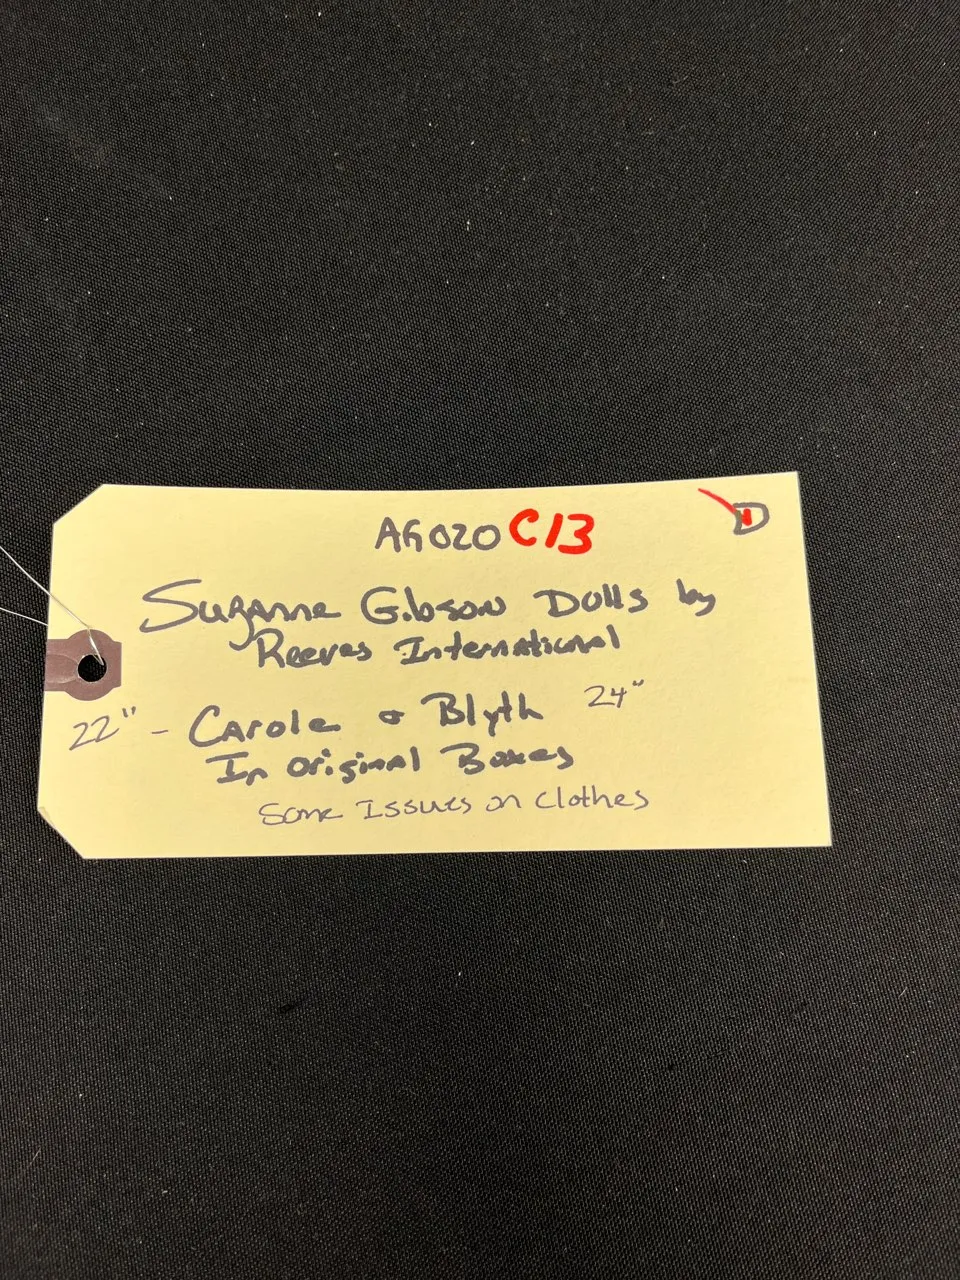 AG020 C13 D
Suzanne Gibson Dolls by
Reeves International
22" - Carole & Blyth 24"
In Original Boxes
Some Issues on Clothes